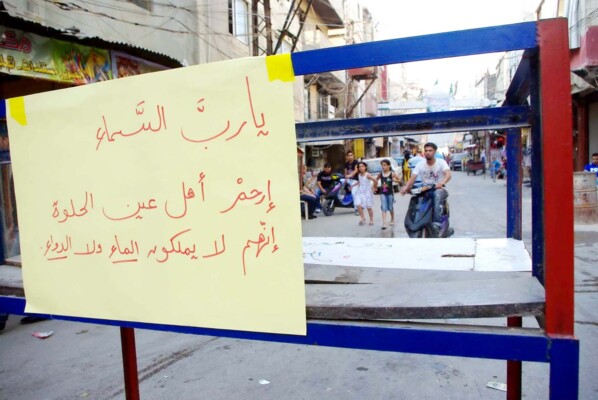 يا ربَّ السَّماء
إرحمْ أهل عين الحلوة
إنّهم لا يملكون الماء ولا الدواء.